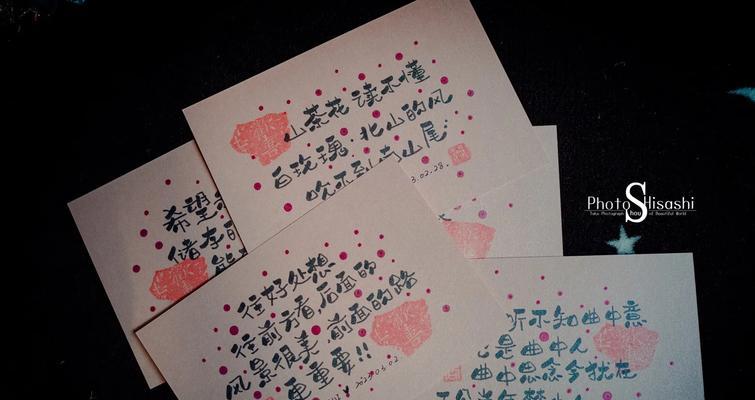 山茶花读不懂
白玫瑰·北山的风
吹不到南山尾
3.02.28.
希望
储存
能
往好处想
往前方看,后面的
风景很美,前面的路
更重要!!
2023.03.02
听不知曲中意
是曲中人
曲中思念今犹在
Photo Shou Hisashi
Take Photograph of Beautiful World